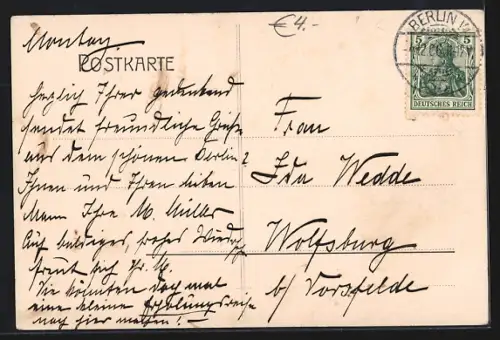 €4.-
Montag.
POSTKARTE
BERLIN
5 5
DEUTSCHES REICH
Herzlich Ihrer gedenkend
sendet freundliche Grüße
aus dem schönen Berlin
Ihnen und Ihrem lieben
Mann Ihre M. Müller
Auf baldiges, frohes Wiedersehn
freut sich Ihr. M.
Sie könnten doch mal
eine kleine Erholungsreise
nach hier machen! –
Frau
Ida Wedde
Wolfsburg
b/ Vorsfelde